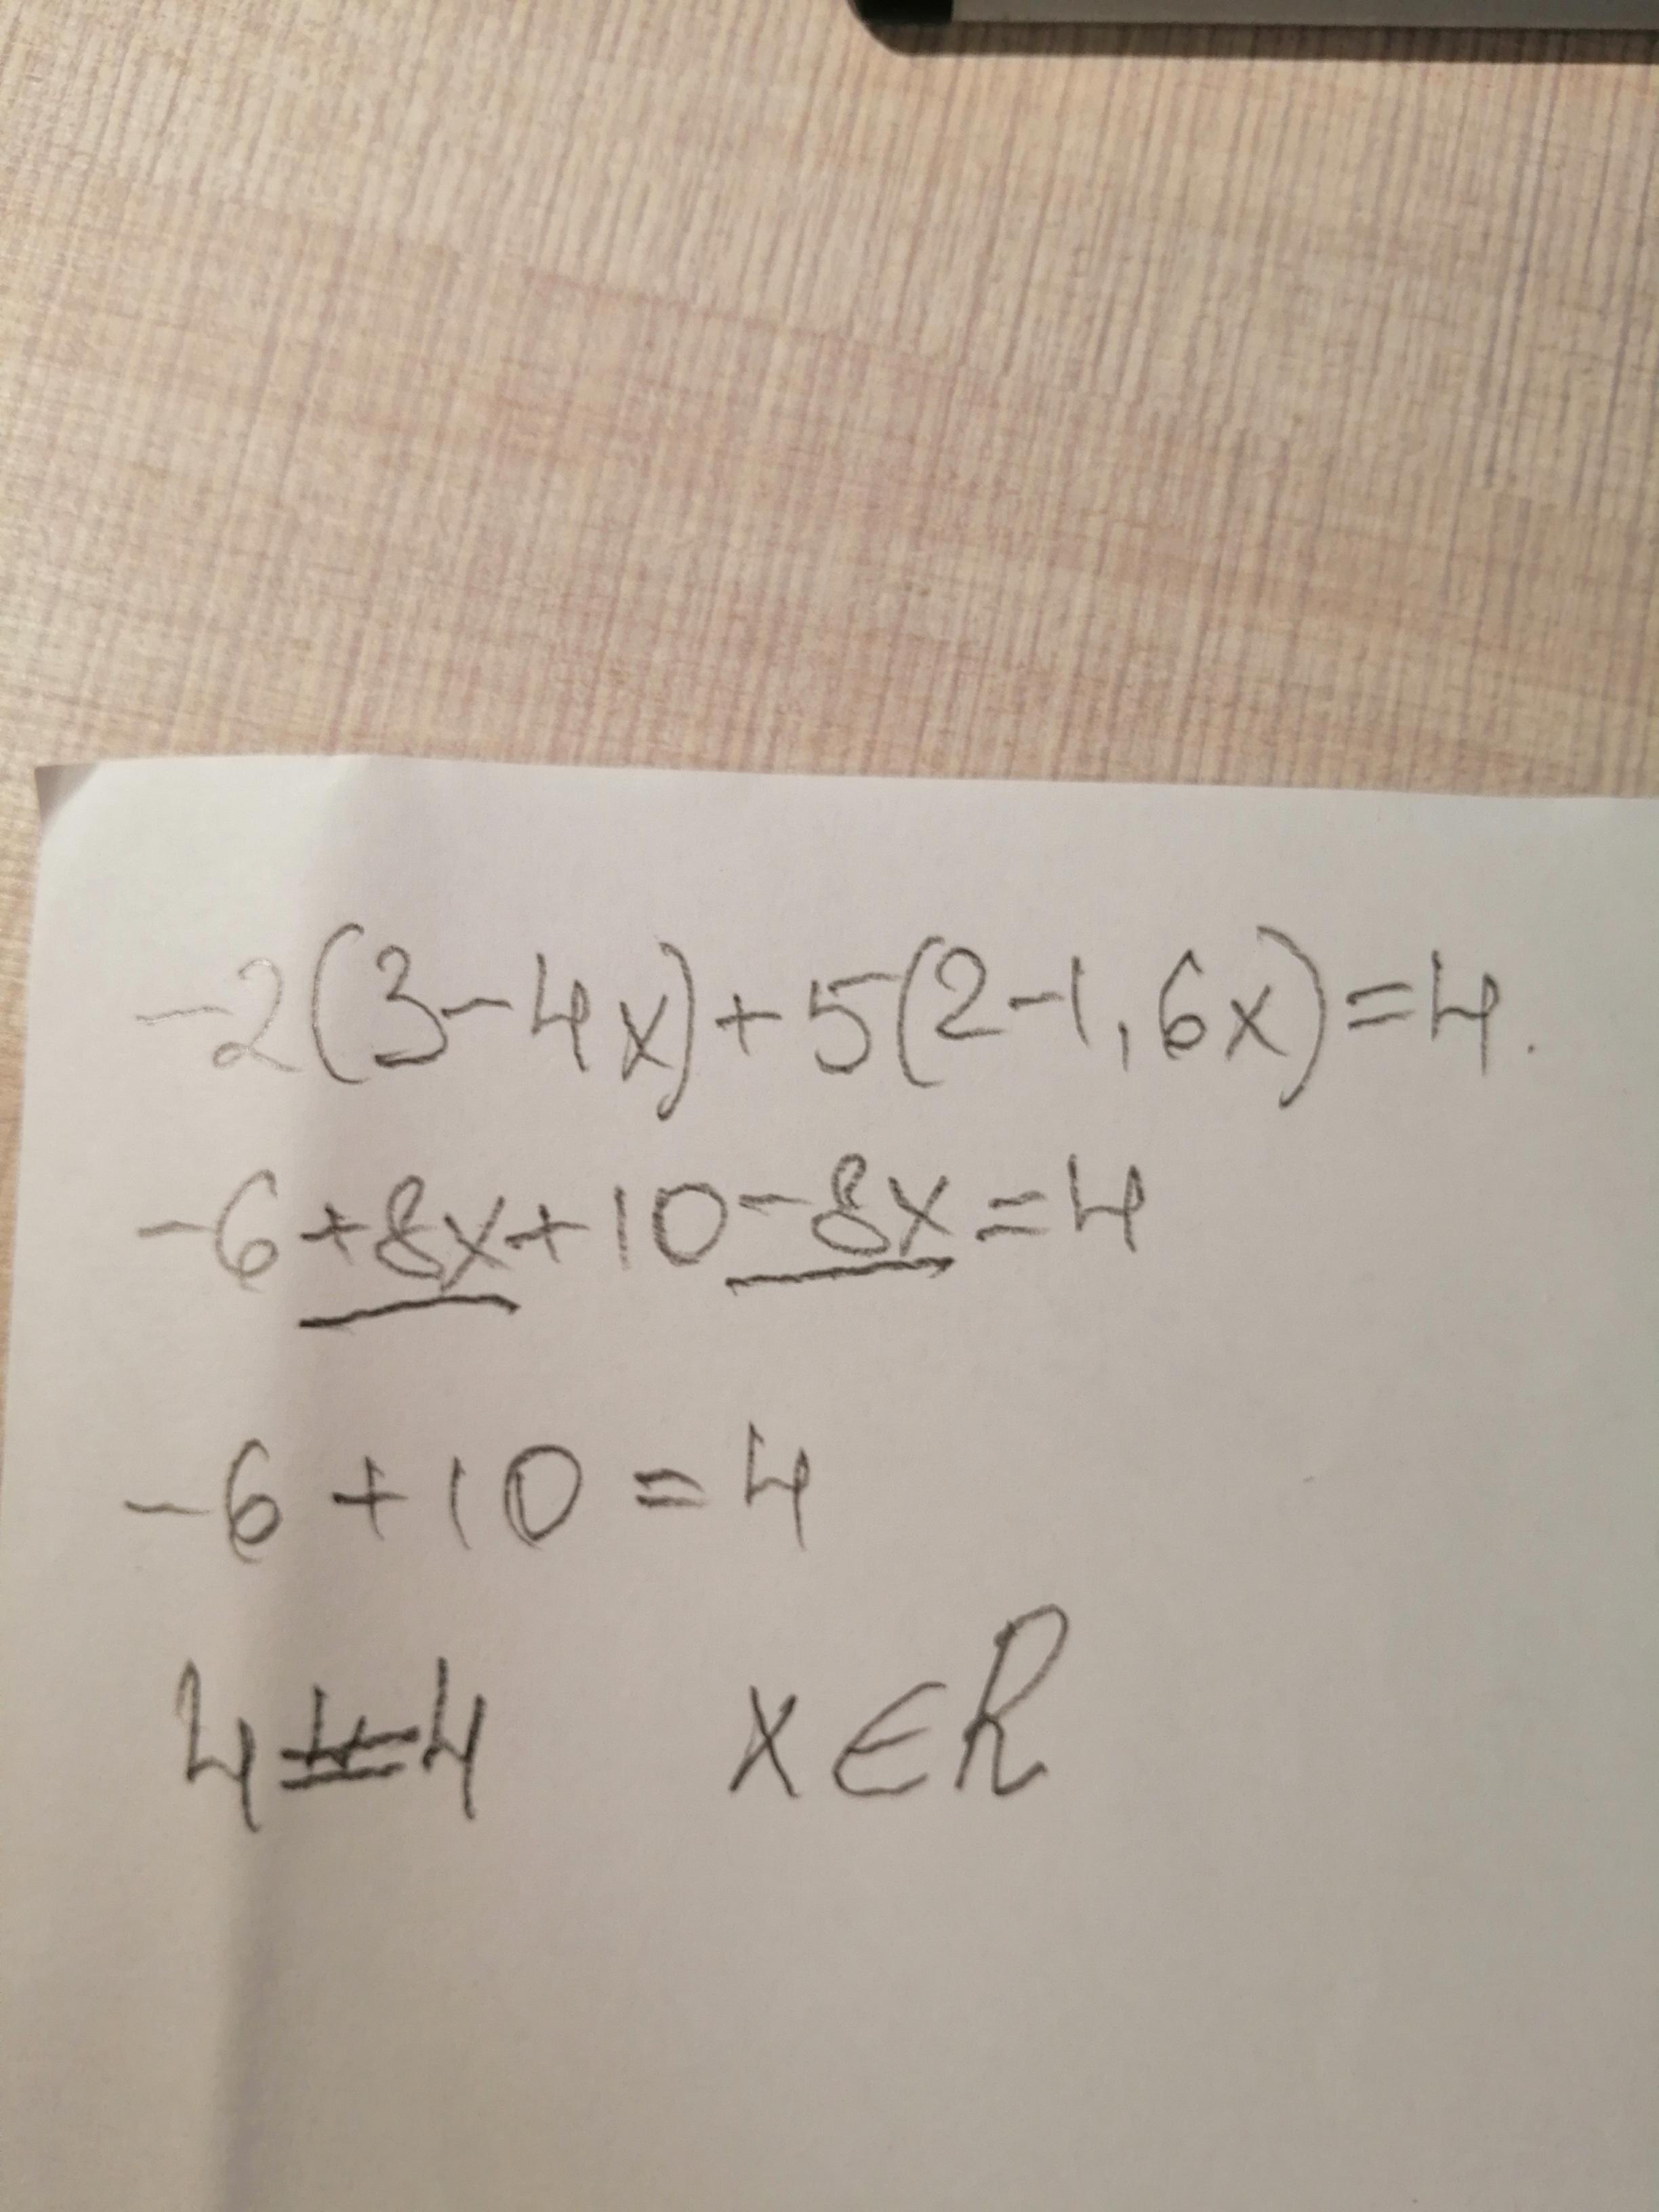 -2(3-4x)+5(2-1,6x)=4.
-6+8x+10-8x=4
-6+10=4
4=4 x∈R